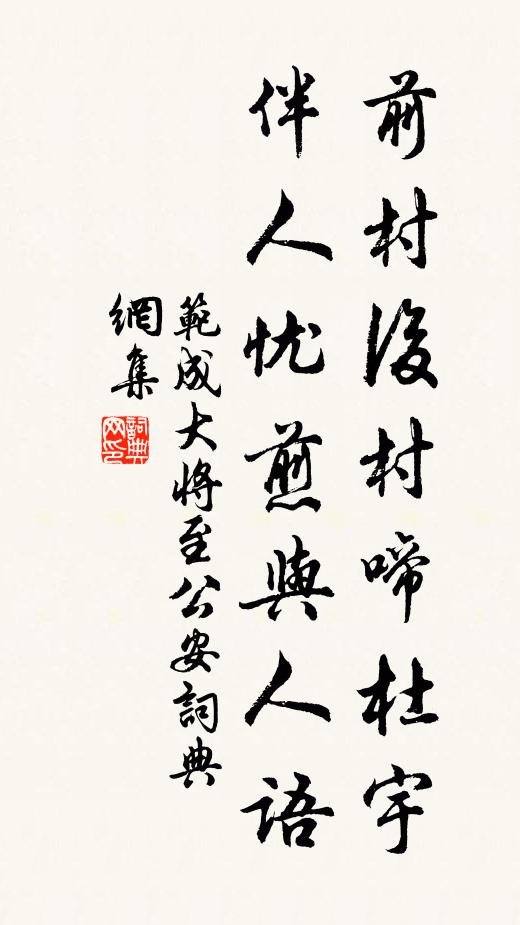 前村後村啼杜宇
伴人忧煎與人語
範成大將至公安詞典
網集
詞典
网印